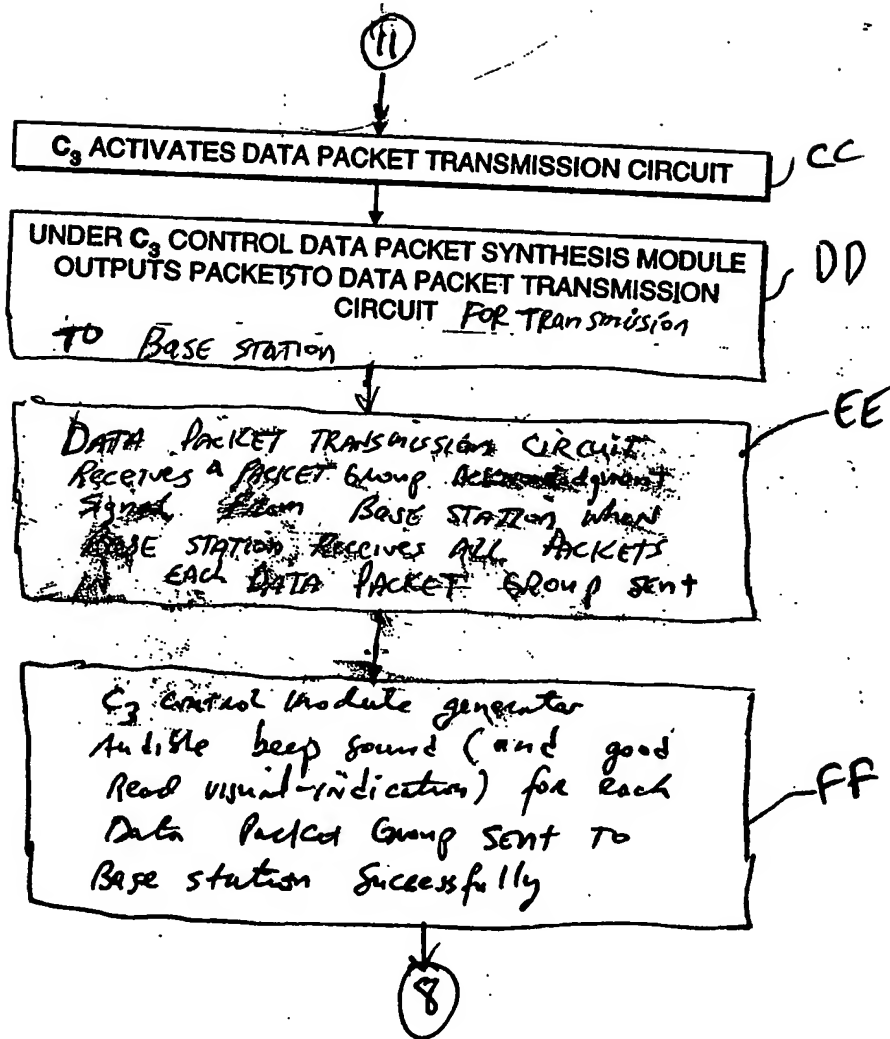 11
C₃ ACTIVATES DATA PACKET TRANSMISSION CIRCUIT
CC
UNDER C₃ CONTROL DATA PACKET SYNTHESIS MODULE
OUTPUTS PACKETS TO DATA PACKET TRANSMISSION
CIRCUIT FOR TRansmission
TO BASE STATION
DD
DATA PACKET TRANSMISSION CIRCUIT
Receives a PACKET Group
Signal from BASE STATION when
BASE STATION Receives ALL PACKETS
EACH DATA PACKET GROUP sent
EE
C₃ control module generator
Audible beep sound (and good
Read visual-indication) for each
Data Packet Group SENT TO
Base station Successfully
FF
8